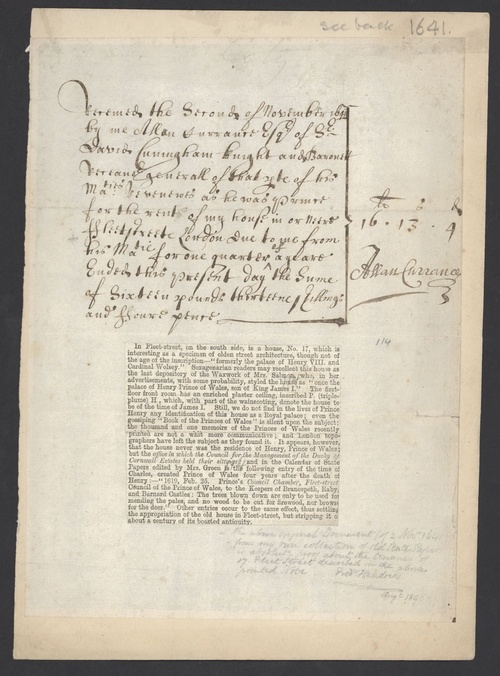 see back 1641.
Receiued the Second of November 1641
by me Allan Currance Esqr of Sr
David Cuningham Knight and Baronett
Receaue generall of that pte of his
Maties Revenewes as he was Prince
for the rent of my house in or neere
ffleetstreete London due to me from
his Matie for one quarter a yeare
Ended this present day the Sume
of Sixteen pounds thirteene shillings
and ffoure pence
li s d
16 - 13 - 4
Allan Currance
114
In Fleet-street, on the south side, is a house, No. 17, which is
interesting as a specimen of olden street architecture, though not of
the age of the inscription—"formerly the palace of Henry VIII. and
Cardinal Wolsey." Sexagenarian readers may recollect this house as
the last depository of the Waxwork of Mrs. Salmon, who, in her
advertisements, with some probability, styled the house as "once the
palace of Henry Prince of Wales, son of King James I." The first-
floor front room has an enriched plaster ceiling, inscribed P. (triple-
plume) H., which, with part of the wainscoting, denote the house to
be of the time of James I. Still, we do not find in the lives of Prince
Henry any identification of this house as a Royal palace; even the
gossiping "Book of the Princes of Wales" is silent upon the subject;
the thousand and one memoirs of the Princes of Wales recently
printed are not a whit more communicative; and London topo-
graphers have left the subject as they found it. It appears, however,
that the house never was the residence of Henry, Prince of Wales;
but the office in which the Council for the Management of the Duchy of
Cornwall Estates held their sittings; and in the Calendar of State
Papers edited by Mrs. Green is the following entry of the time of
Charles, created Prince of Wales four years after the death of
Henry:—"1619, Feb. 25. Prince's Council Chamber, Fleet-street
Council of the Prince of Wales, to the Keepers of Brancepeth, Raby,
and Barnard Castles: The trees blown down are only to be used for
mending the pales, and no wood to be cut for firewood, nor browse
for the deer." Other entries occur to the same effect, thus settling
the appropriation of the old house in Fleet-street, but stripping it of
about a century of its boasted antiquity.
The above original Document of 2 Nov 1641
from my own collection of old State Papers
is about the
of Fleet Street described in the above
printed note Fredk Hendriks